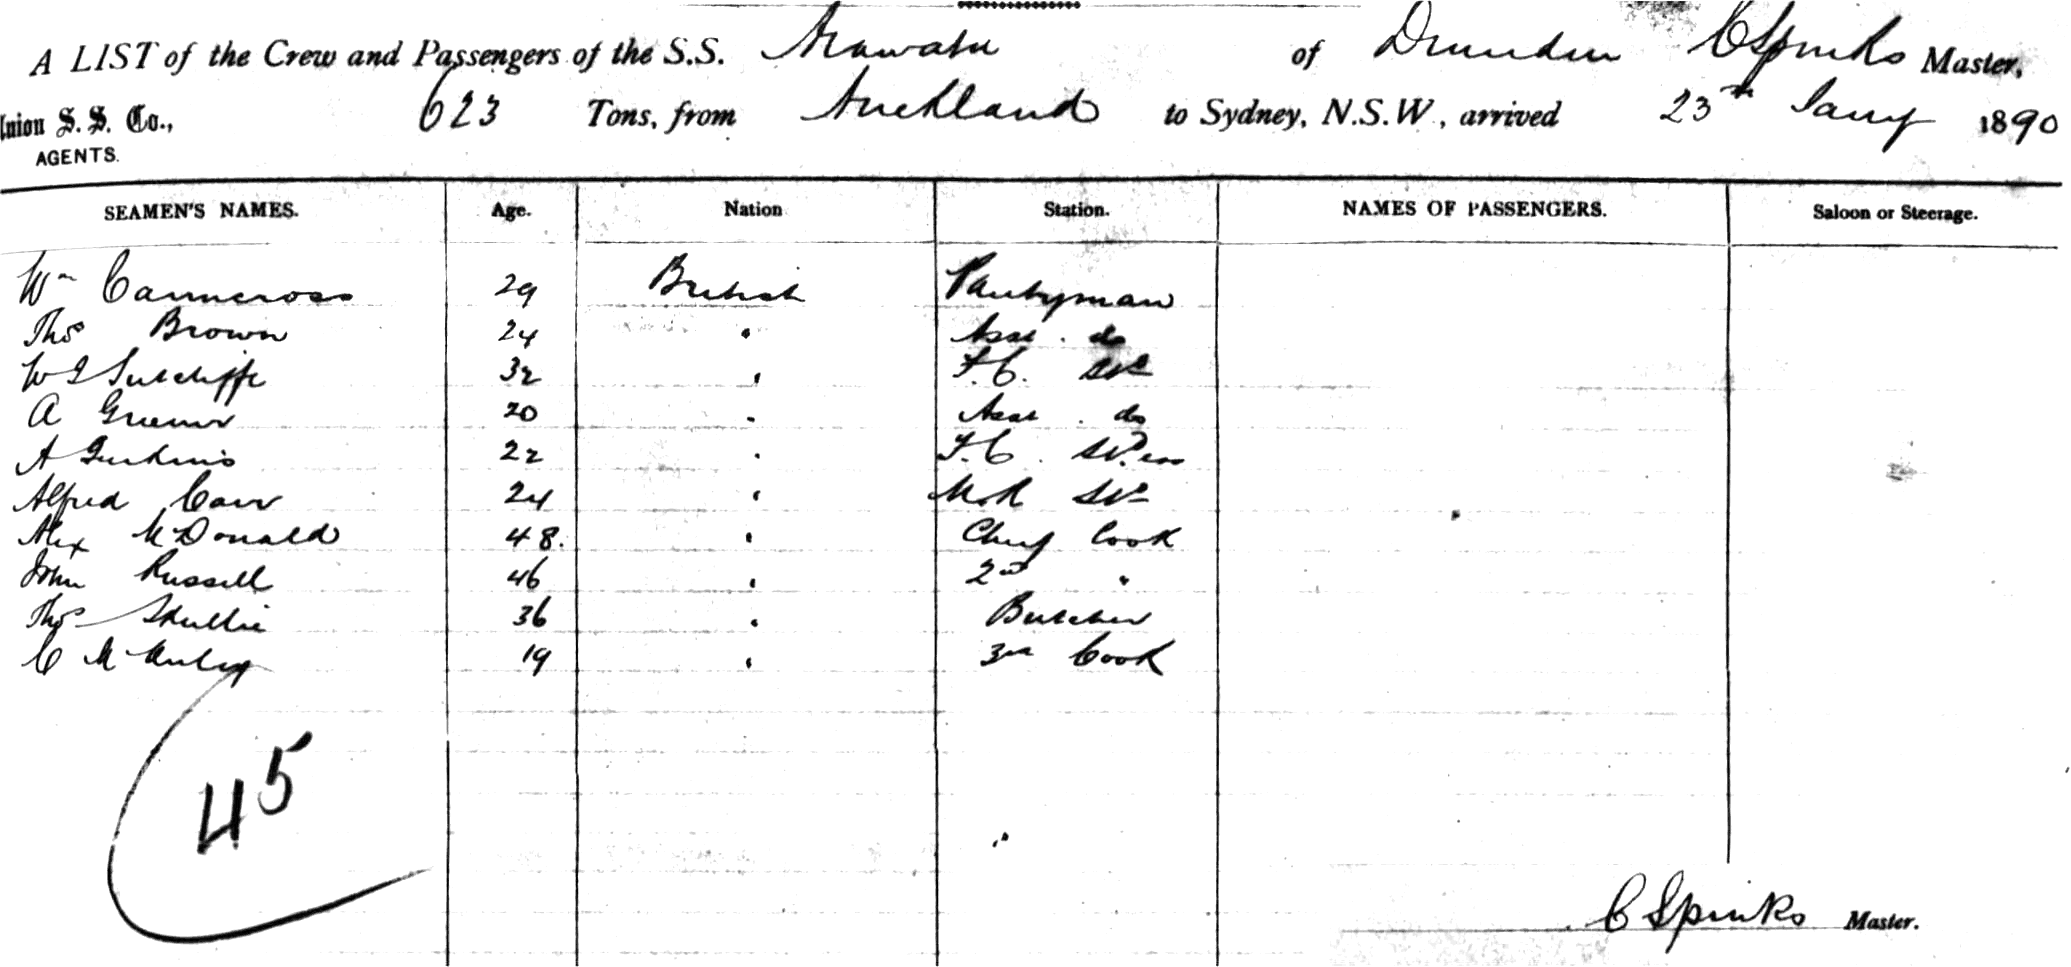 A LIST of the Crew and Passengers of the S.S. Arawata of Dunedin C Spinks Master,
Union S. S. Co., 623 Tons, from Auckland to Sydney, N.S.W., arrived 23rd Jany 1890
AGENTS.
SEAMEN'S NAMES. Age. Nation Station. NAMES OF PASSENGERS. Saloon or Steerage.
Wm Cairncross 29 British Pantryman
Thos Brown 24 " Asst. do
W J Sutcliffe 32 " F.C. Std
A 20 " Asst. do
A 22 " F.C. Stdess
Alfred Carr 24 " M.R Std
Alex McDonald 48. " Chief Cook
John Russell 46 " 2nd "
Thos 36 " Butcher
C 19 " 3rd Cook
45
C Spinks Master.